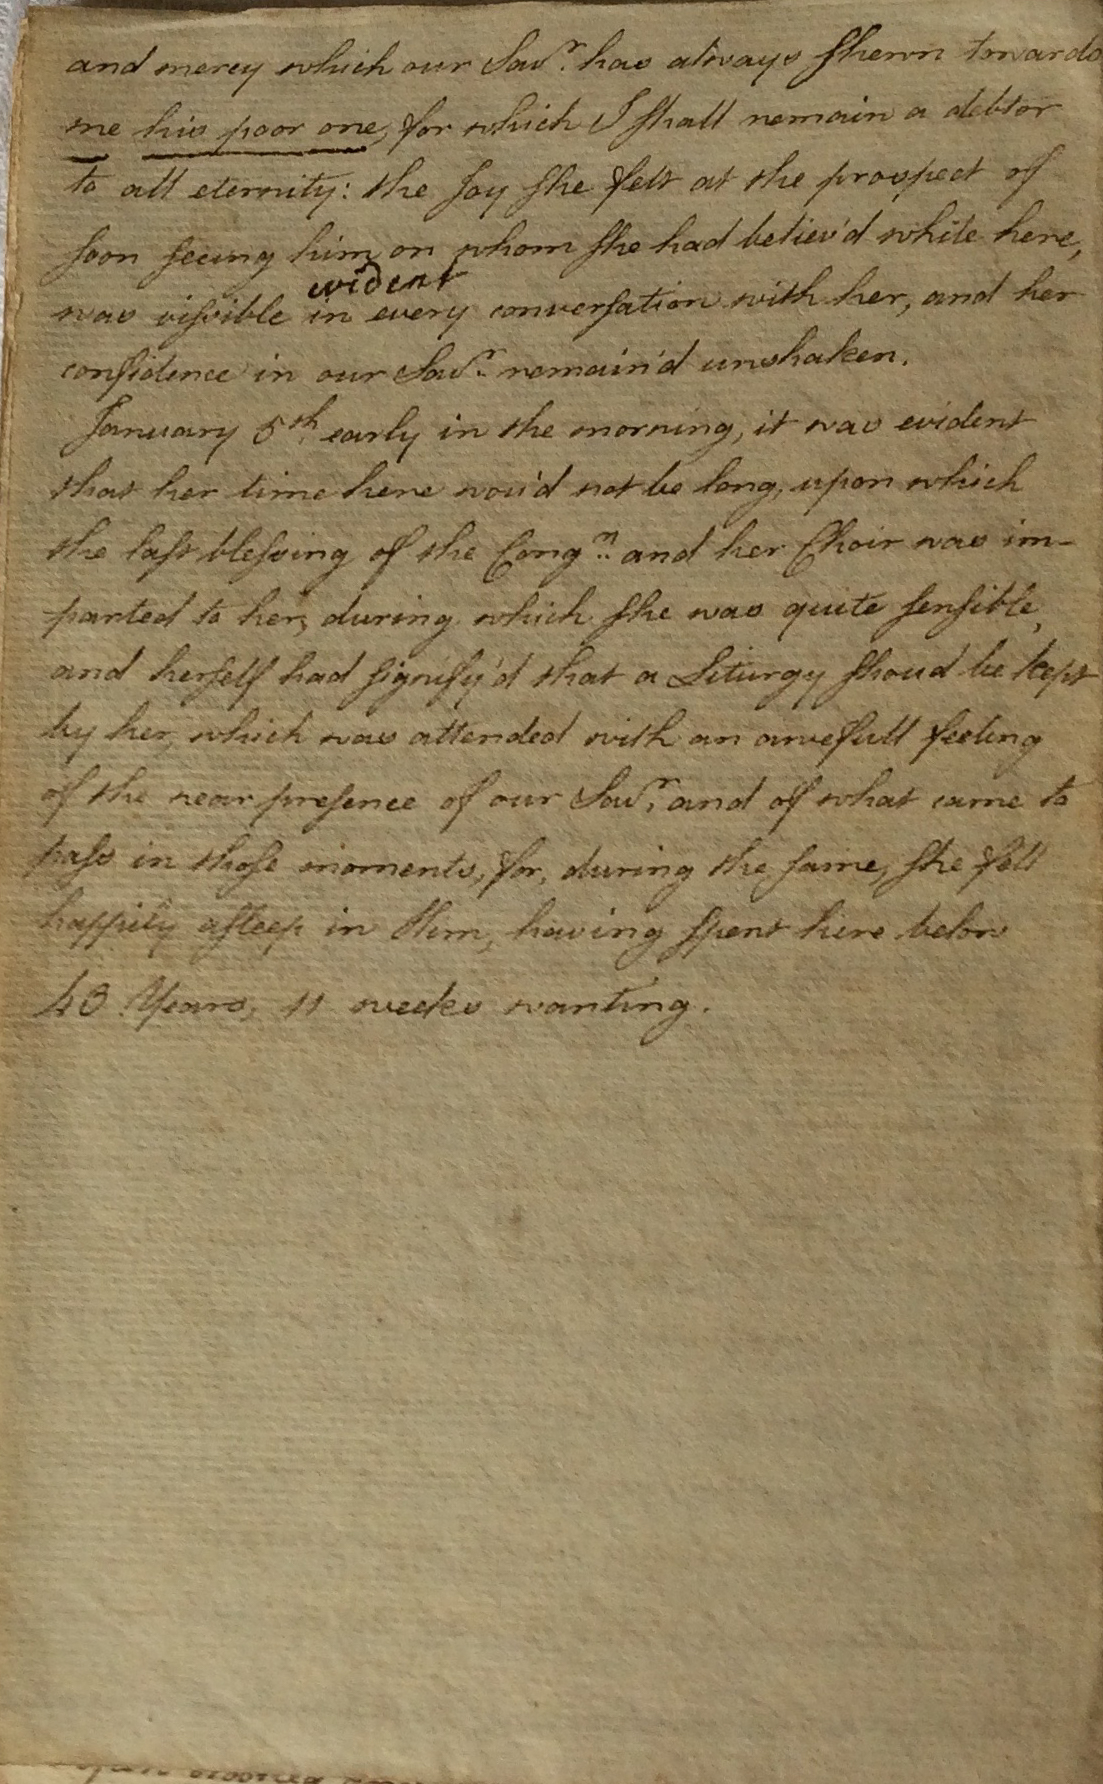 and mercy which our Savr. has always shewn towards
me his poor one, for which I shall remain a debtor
to all eternity: the Joy she felt at the prospect of
soon seeing him on whom she had believ'd while here,
evident
was vissible in every conversation with her, and her
confidence in our Savr. remain'd unshaken.
January 5th. early in the morning, it was evident
that her time here wou'd not be long, upon which
the last blessing of the Congn. and her Choir was im-
parted to her, during which she was quite sensible,
and herself had signify'd that a Liturgy shoud be kept
by her, which was attended with an awefull feeling
of the near presence of our Savr. and of what came to
pass in those moments, for, during the same, she fell
happily asleep in Him, having spent here below
43 Years, 11 weeks wanting.